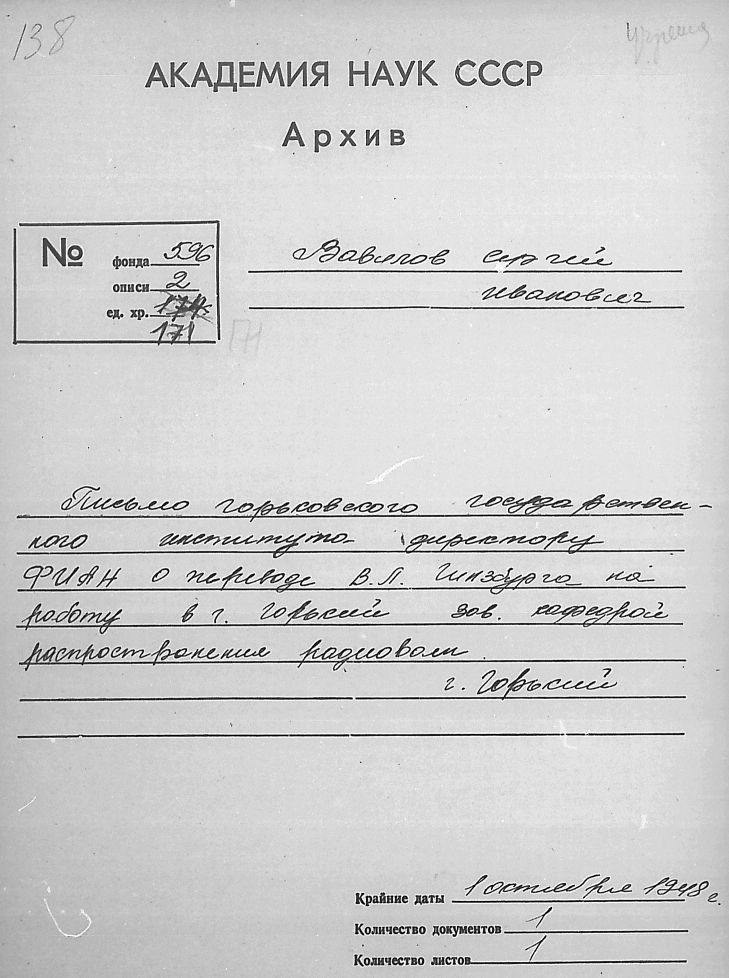 138
АКАДЕМИЯ НАУК СССР
Архив
№
фонда 596
описи 2
ед. хр. 171
Вавилов Сергей
Иванович
Письмо Горьковского государствен-
ного института директору
ФИАН о переводе В.Л. Гинзбурга на
работу в г. Горький зав. кафедрой
распространения радиоволн.
г. Горький
Крайние даты 1 октября 1948 г.
Количество документов 1
Количество листов 1